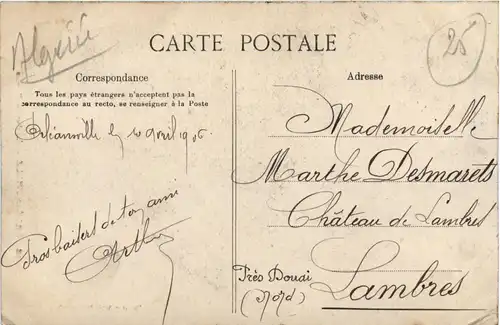 Algérie
25
CARTE POSTALE
Correspondance
Tous les pays étrangers n'acceptent pas la
correspondance au recto, se renseigner à la Poste
Orléanville le 10 avril 1906
Gros baisers de ton ami
Arthur
Adresse
Mademoiselle
Marthe Desmarets
Château de Lambres
Près Douai
(Nord)
Lambres